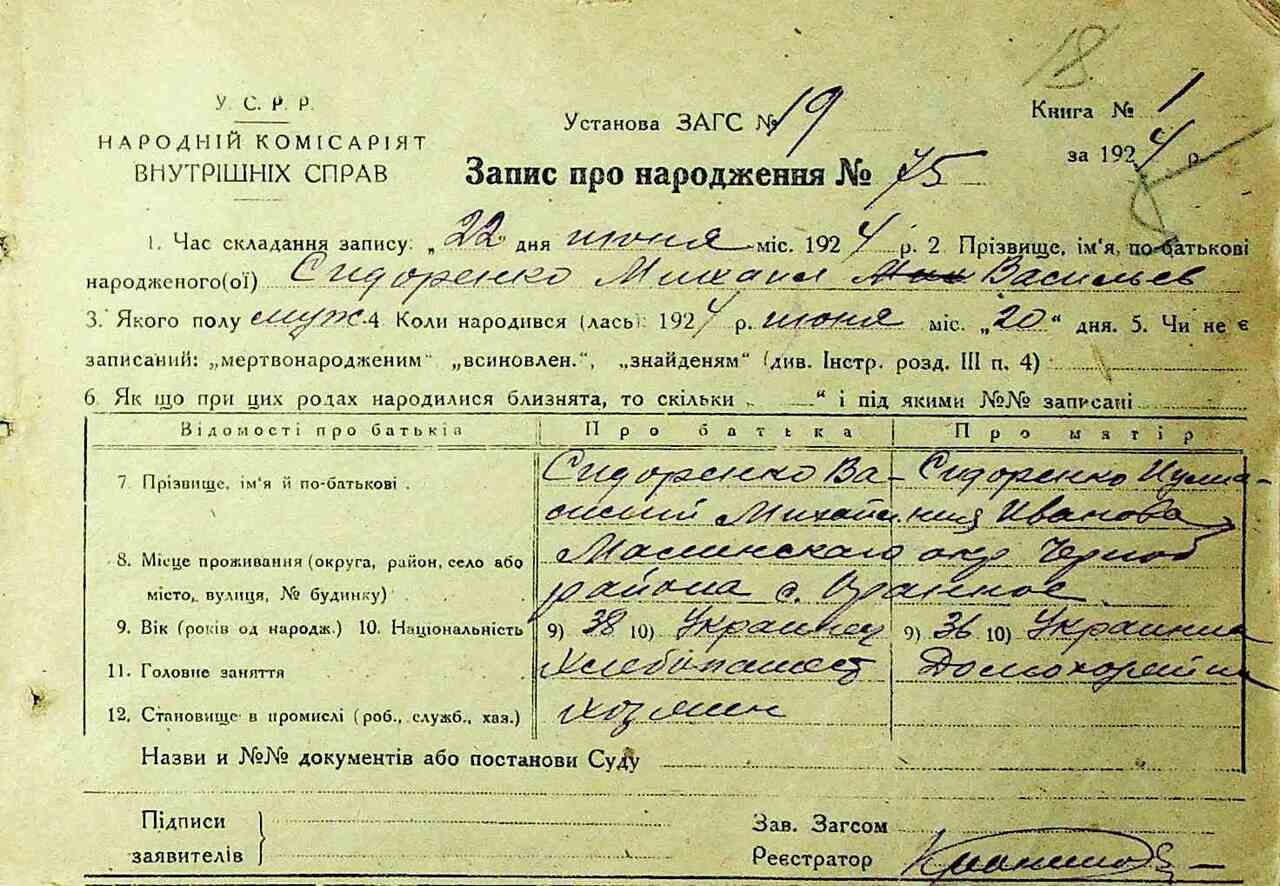 18.
У. С. Р. Р.
НАРОДНІЙ КОМІСАРІЯТ
ВНУТРІШНІХ СПРАВ
Установа ЗАГС № 19
Книга № 1
за 1924 р.
Запис про народження № 75
1. Час складання запису: „22" дня июня міс. 1924 р. 2 Прізвище, ім'я, по-батькові
народженого(ої) Сидоренко Михаил Васильев
3. Якого полу муж. 4 Коли народився (лась): 1924 р. июня міс. „20" дня. 5. Чи не є
записаний: „мертвонародженим" „всиновлен.", „знайденям" (див. Інстр. розд. III п. 4)
6. Як що при цих родах народилися близнята, то скільки „ " і під якими №№ записані
Відомості про батьків Про батька Про матір
7. Прізвище, ім'я й по-батькові. Сидоренко Ва- Сидоренко
силий Иванова
8. Місце проживання (округа, район, село або Малинскаго окр Черноб
місто, вулиця, № будинку) района с.
9. Вік (років од народж.) 10. Національність 9) 38 10) Украинец 9) 36 10)
11. Головне заняття Хлебопашец
12. Становище в промислі (роб., служб., хаз.) хозяин
Назви и №№ документів або постанови Суду
Підписи
заявителів
Зав. Загсом
Реєстратор